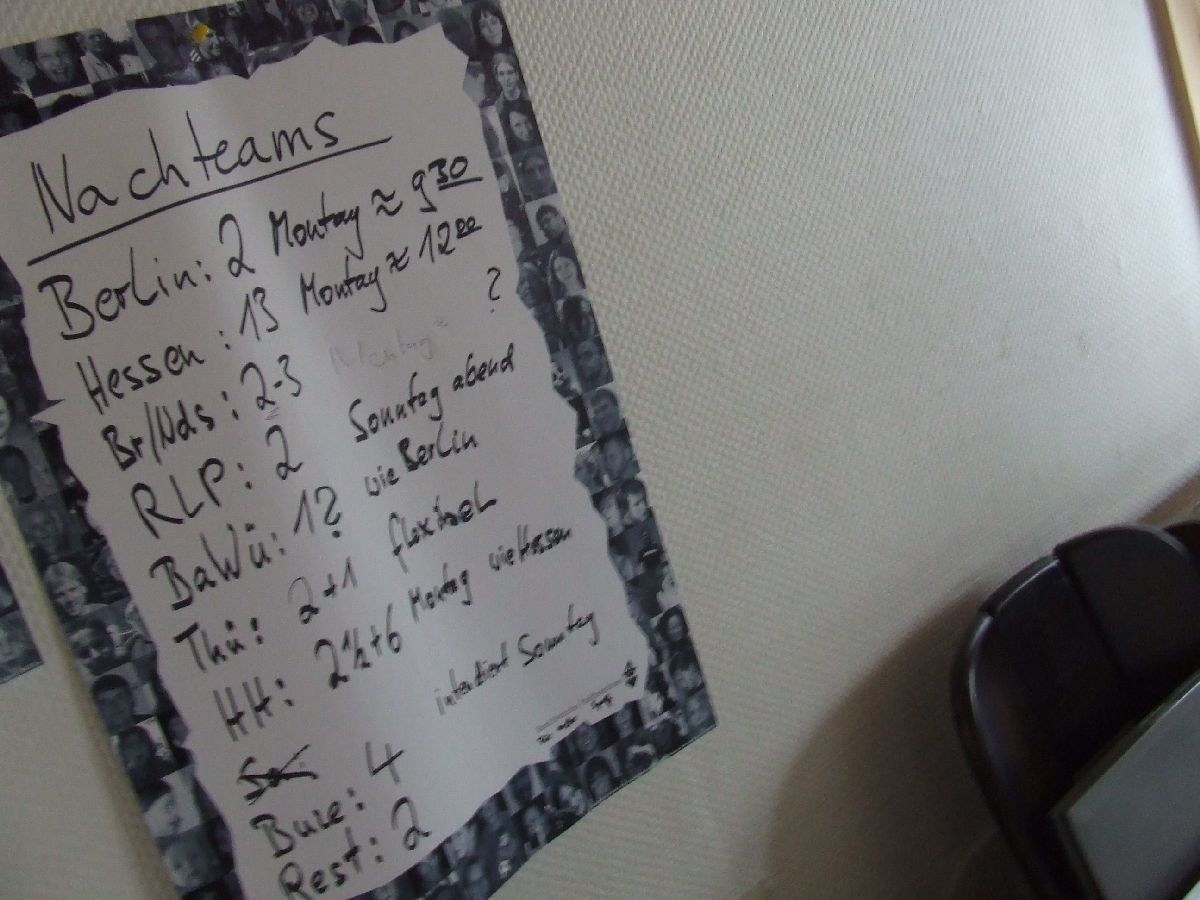 Nachteams
Berlin: 2 Montag ≈ 9³⁰
Hessen: 13 Montag ≈ 12⁰⁰
Br/Nds: 2-3 Montag ≈ ?
RLP: 2 Sonntag abend
BaWü: 1? wie Berlin
Thü: 2+1 flexibel
HH: 2½+6 Montag wie Hessen
intendiert Sonntag
Bure: 4
Rest: 2